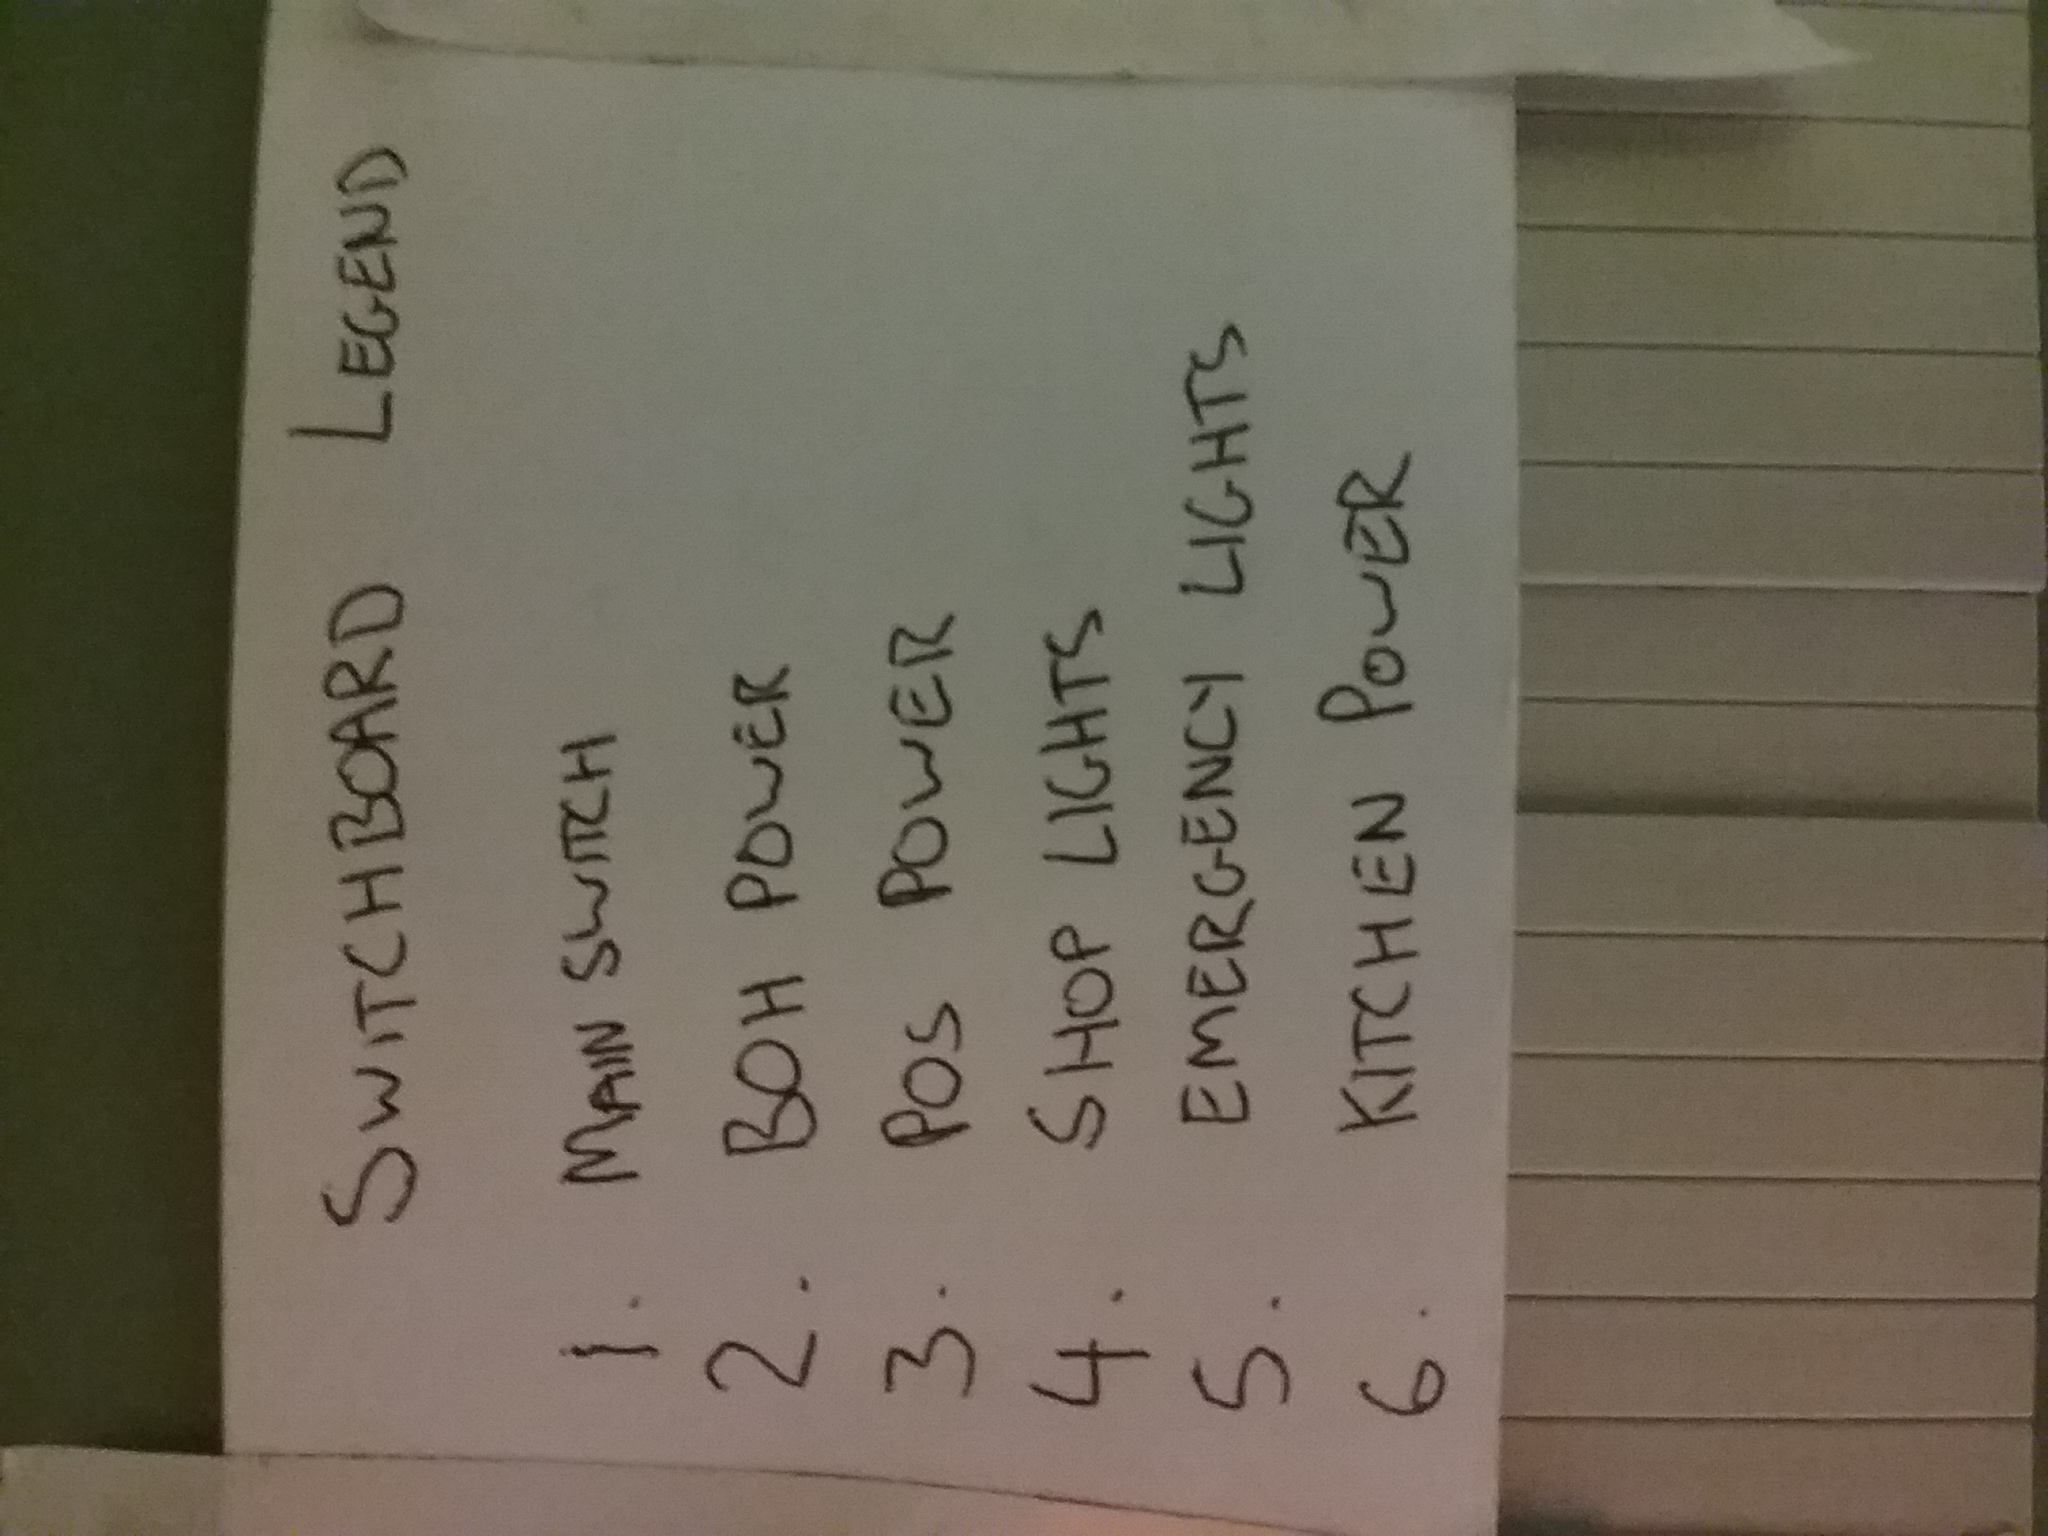 SWITCHBOARD LEGEND
1. MAIN SWITCH
2. BOH POWER
3. POS POWER
4. SHOP LIGHTS
5. EMERGENCY LIGHTS
6. KITCHEN POWER